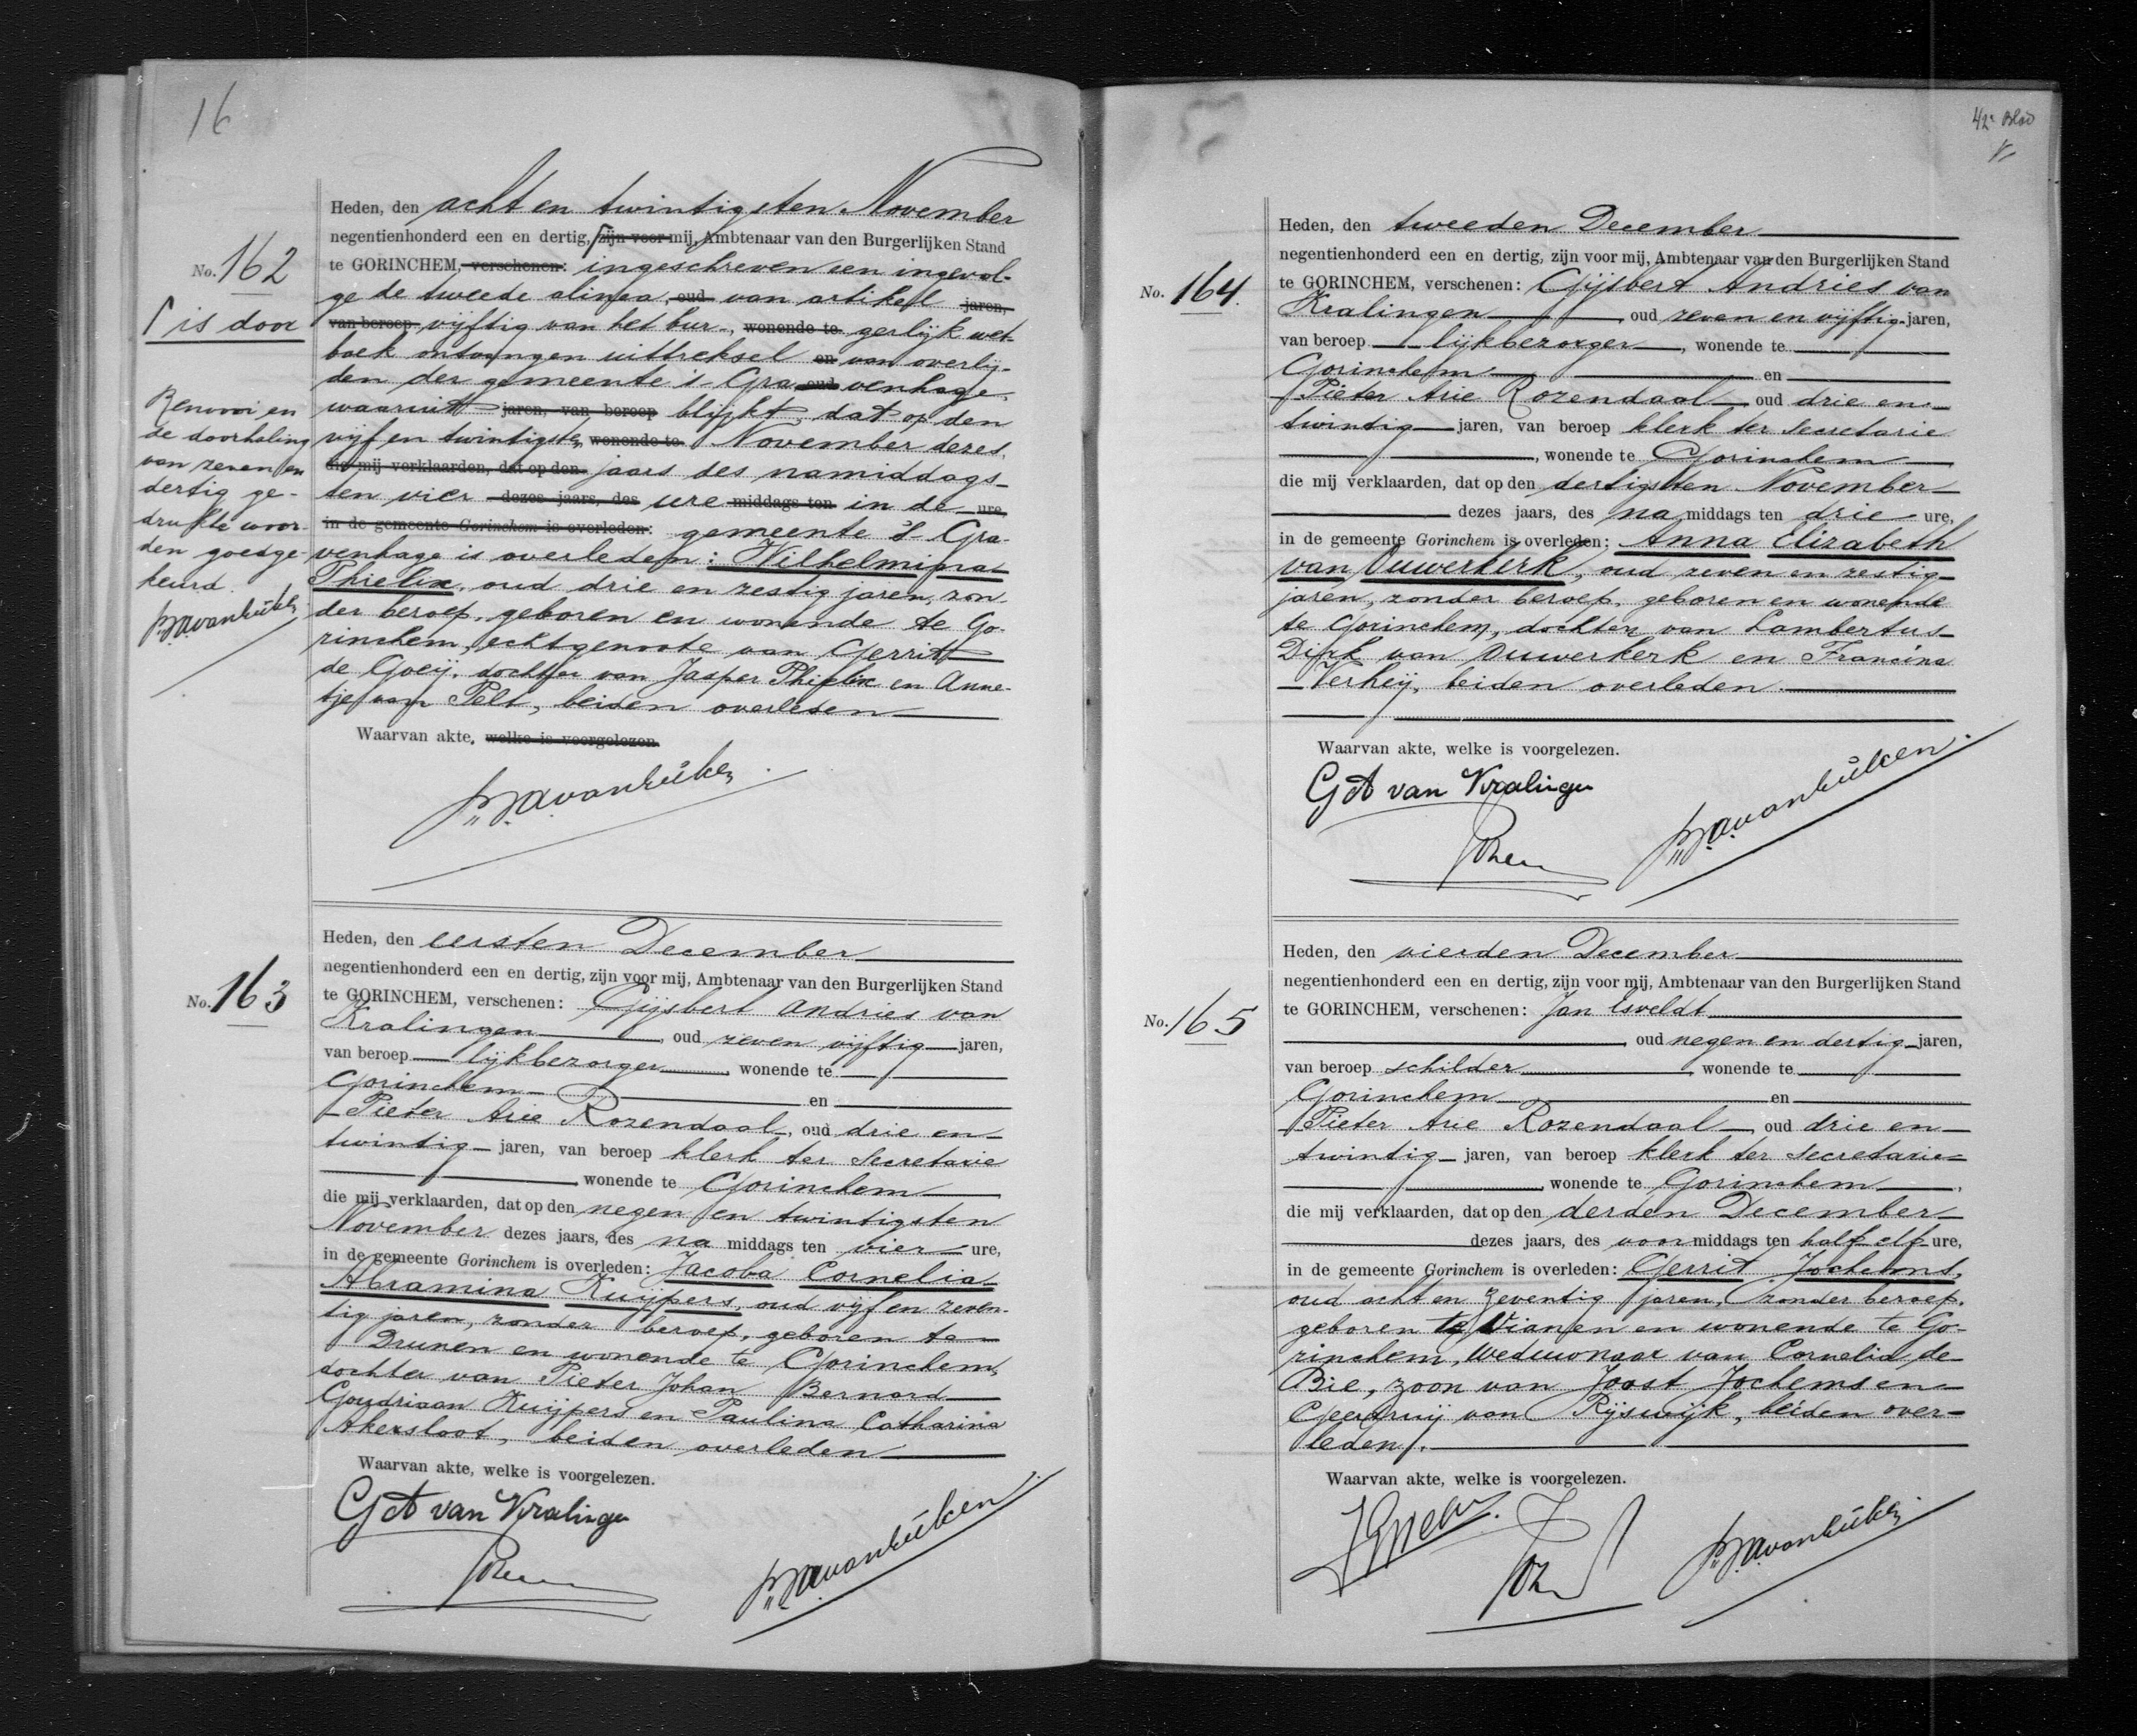 16
No. 162
Heden, den acht en twintigsten November
negentienhonderd een en dertig, ſ zijn voor mij, Ambtenaar van den Burgerlijken Stand
te GORINCHEM, verschenen: ingeschreven een ingevol-
ge de tweede alinea, oud van artikel jaren,
van beroep vijftig van het bur-, wonende te gerlijk wet-
boek ontvangen uittreksel en van overlij-
den der gemeente 's-Gra oud venhage,
waaruit jaren, van beroep blijkt, dat op den
vijf en twintigsten wonende te November dezes
die mij verklaarden, dat op den jaars des namiddags
ten vier dezes jaars, des ure middags ten in de ure,
in de gemeente Gorinchem is overleden: gemeente 's-Gra-
venhage is overleden: Wilhelmina
Thielix, oud drie en zestig jaren, zon-
der beroep, geboren en wonende te Go-
rinchem, echtgenoote van Gerrit
de Goeij, dochter van Jasper Thielix en Anne-
tje van Pelt, beiden overleden
Waarvan akte, welke is voorgelezen.
ſ is door
Renvooi en
de doorhaling
van zeven en
dertig ge-
drukte woor-
den goedge-
keurd.
No. 163
Heden, den eersten December
negentienhonderd een en dertig, zijn voor mij, Ambtenaar van den Burgerlijken Stand
te GORINCHEM, verschenen: Gijsbert Andries van
Kralingen, oud zeven vijftig jaren,
van beroep lijkbezorger, wonende te
Gorinchem en
Pieter Arie Rozendaal, oud drie en
twintig jaren, van beroep klerk ter Secretarie
wonende te Gorinchem
die mij verklaarden, dat op den negen en twintigsten
November dezes jaars, des na middags ten vier ure,
in de gemeente Gorinchem is overleden: Jacoba Cornelia
Abramina Kuijpers, oud vijf en zeven-
tig jaren, zonder beroep, geboren te
Drunen en wonende te Gorinchem,
dochter van Pieter Johan Bernard
Goudriaan Kuijpers en Paulina Catharina
Akersloot, beiden overleden
Waarvan akte, welke is voorgelezen.
GA van Kralingen
42e Blad
No. 164.
Heden, den tweeden December
negentienhonderd een en dertig, zijn voor mij, Ambtenaar van den Burgerlijken Stand
te GORINCHEM, verschenen: Gijsbert Andries van
Kralingen, oud zeven en vijftig jaren,
van beroep lijkbezorger, wonende te
Gorinchem en
Pieter Arie Rozendaal, oud drie en
twintig jaren, van beroep klerk ter Secretarie
, wonende te Gorinchem
die mij verklaarden, dat op den dertigsten November
dezes jaars, des na middags ten drie ure,
in de gemeente Gorinchem is overleden: Anna Elizabeth
van Ouwerkerk, oud zeven en zestig
jaren, zonder beroep, geboren en wonende
te Gorinchem, dochter van Lambertus
Dirk van Ouwerkerk en Francina
Verheij, beiden overleden.
Waarvan akte, welke is voorgelezen.
GA van Kralingen
No. 165
Heden, den vierden December
negentienhonderd een en dertig, zijn voor mij, Ambtenaar van den Burgerlijken Stand
te GORINCHEM, verschenen: Jan Esveldt
oud negen en dertig jaren,
van beroep schilder wonende te
Gorinchem en
Pieter Arie Rozendaal, oud drie en
twintig jaren, van beroep klerk ter Secretarie
wonende te Gorinchem,
die mij verklaarden, dat op den derden December
dezes jaars, des voor middags ten half elf ure,
in de gemeente Gorinchem is overleden: Gerrit Jochems,
oud acht en zeventig jaren, zonder beroep,
geboren te Vianen en wonende te Go-
rinchem, weduwnaar van Cornelia de
Bie, zoon van Joost Jochems en
Geertruij van Rijswijk, beiden over-
leden.
Waarvan akte, welke is voorgelezen.